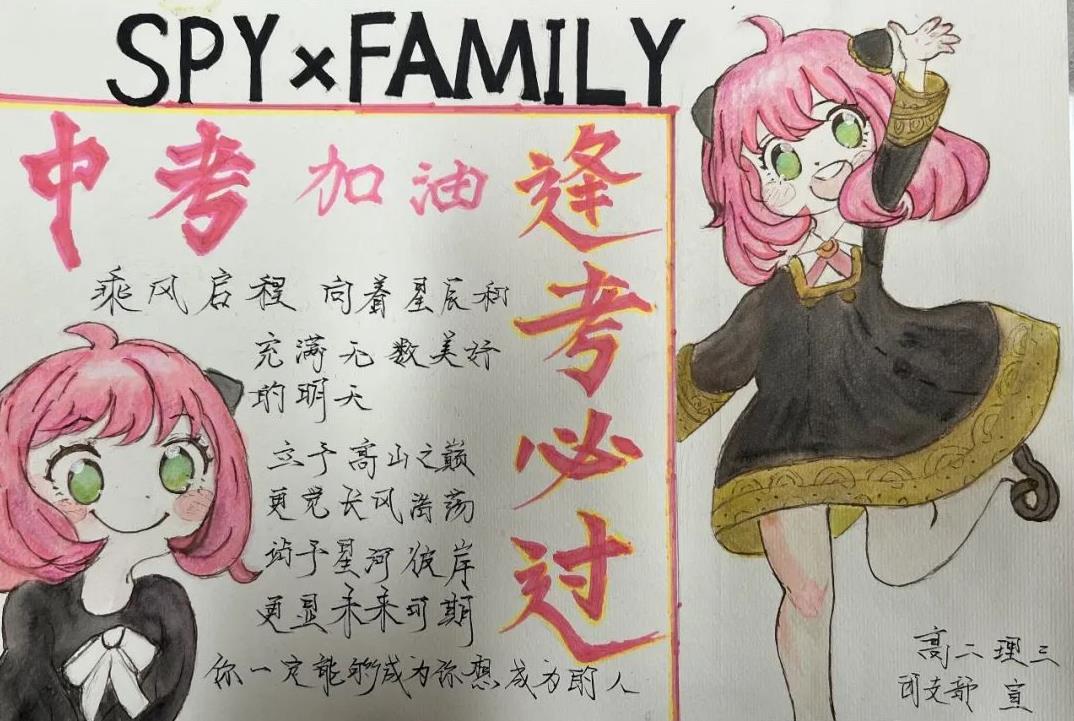 SPY×FAMILY
中考加油
逢考必过
乘风启程 向着星辰和
充满无数美好
的明天
立于高山之巅
更觉长风浩荡
站于星河彼岸
更显未来可期
你一定能够成为你想成为的人
高二理三
团支部 宣